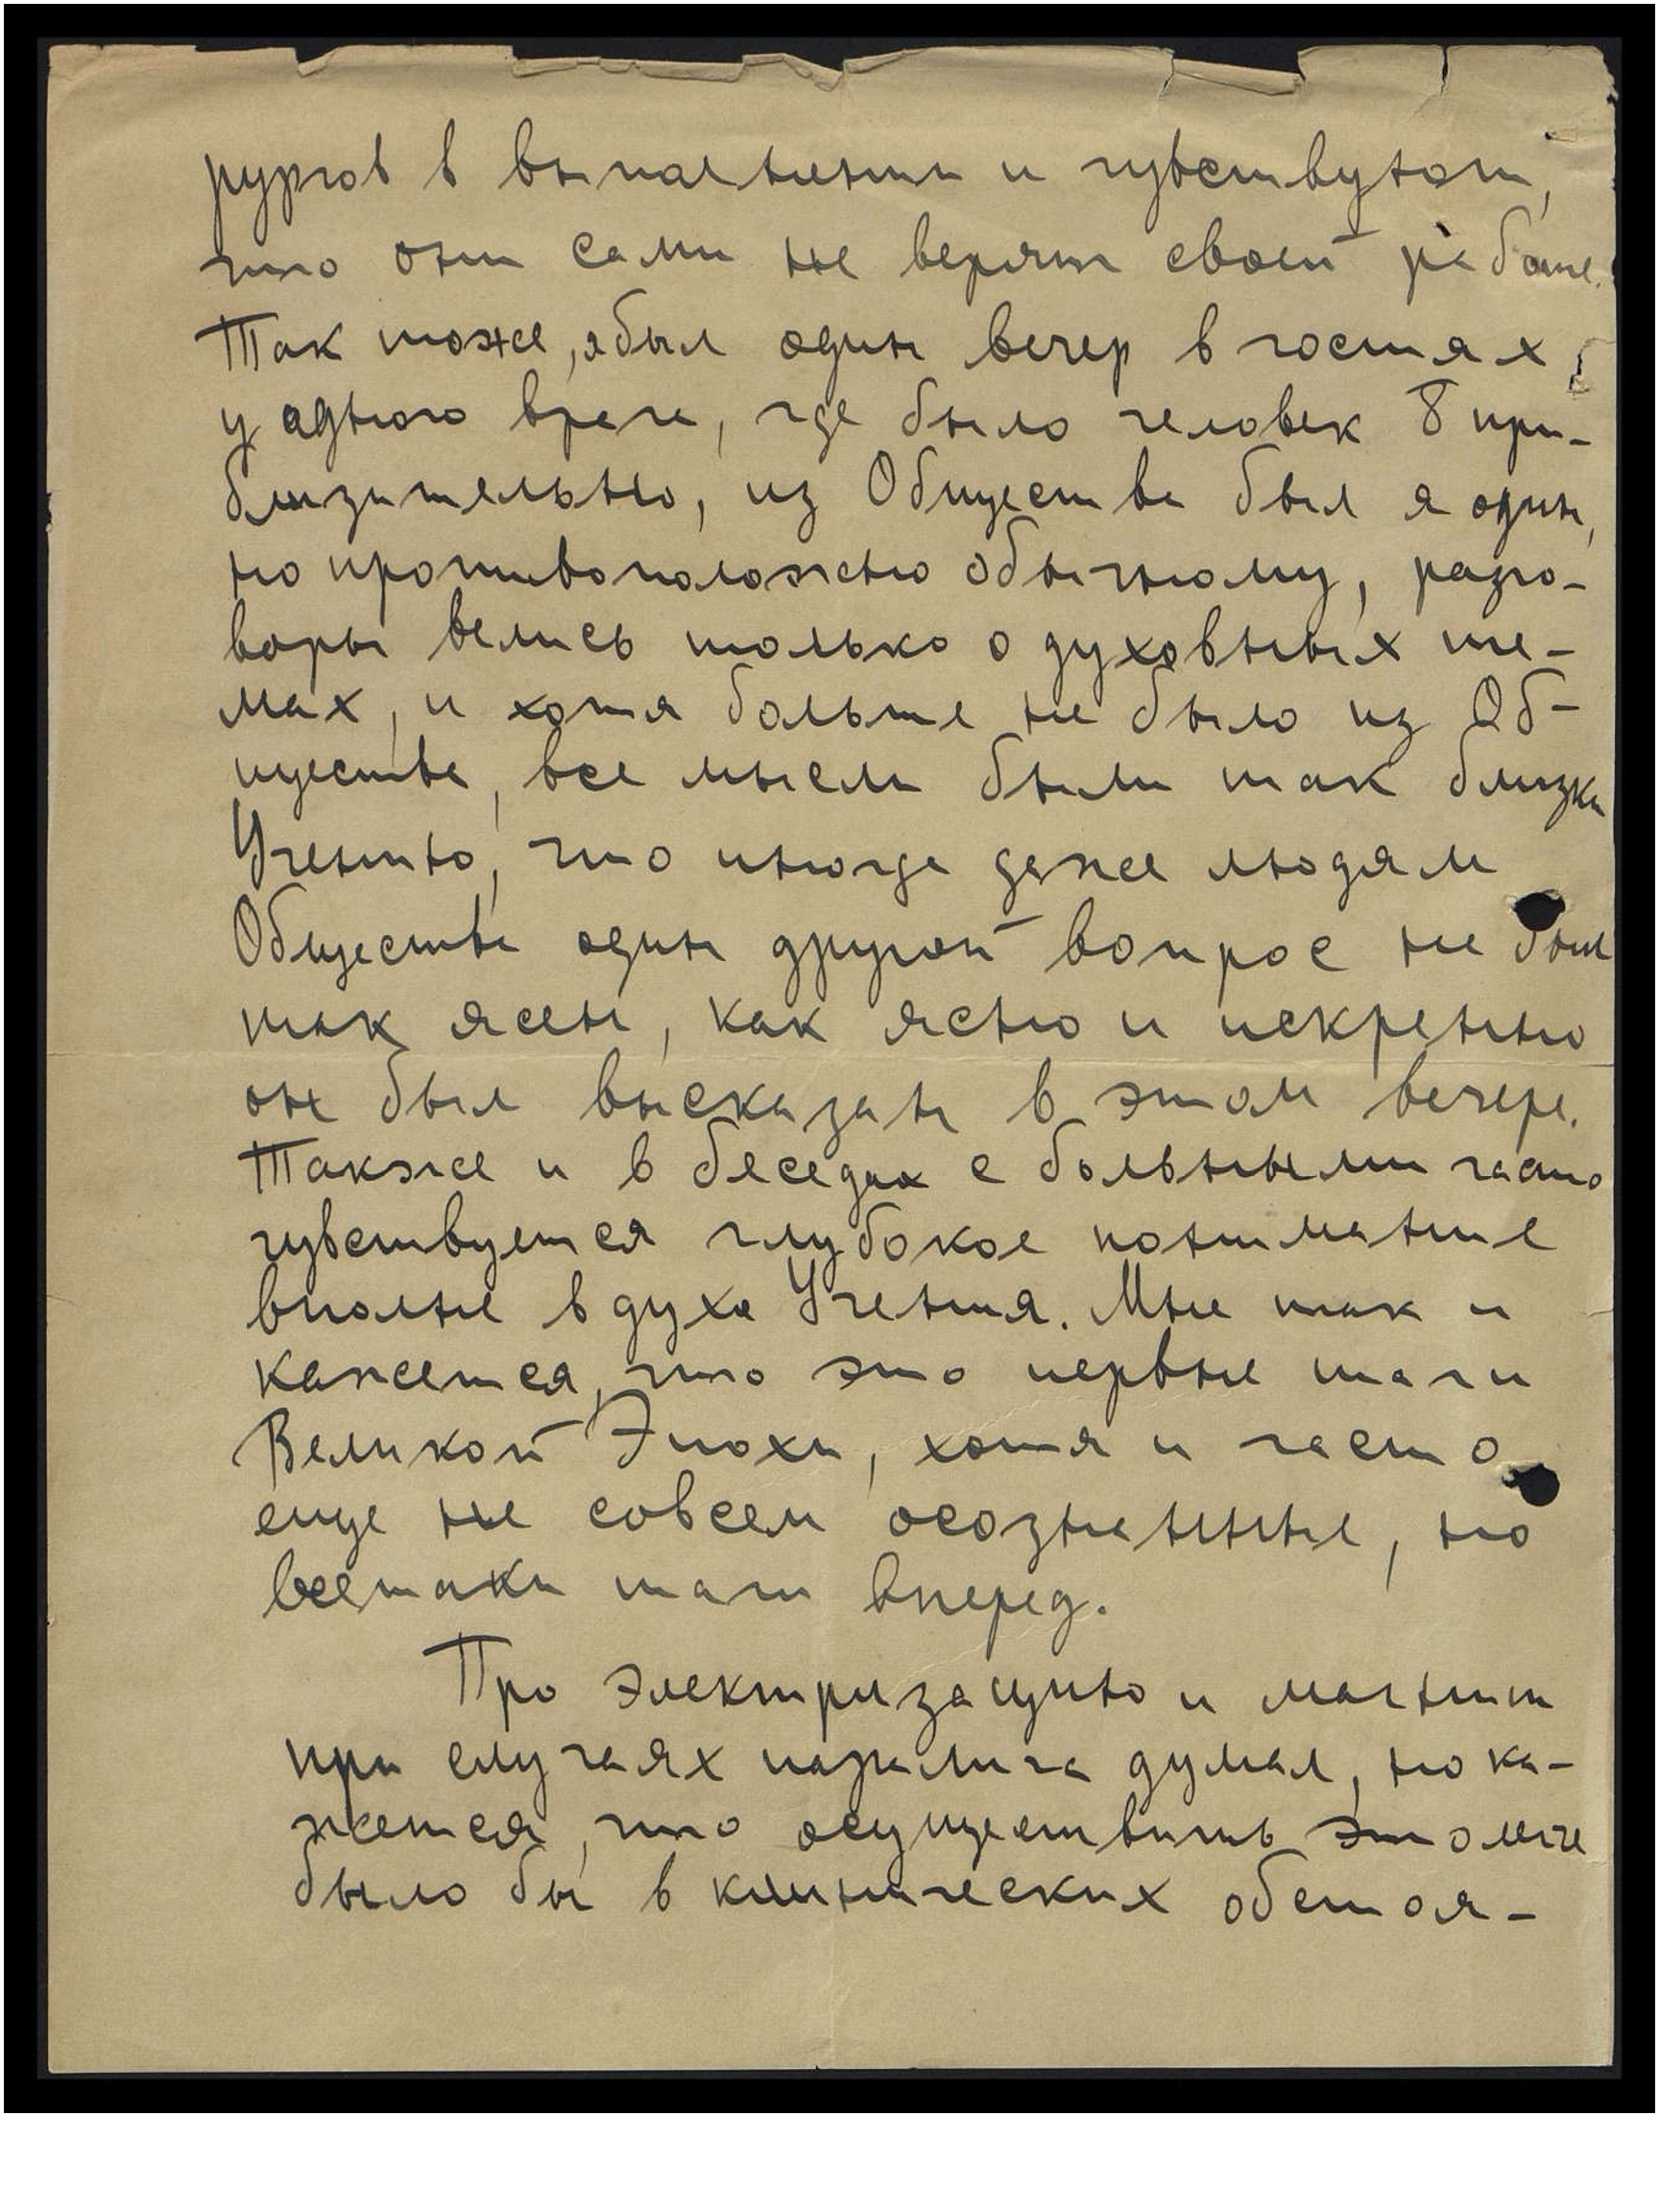 рургов в выполнении и чувствуют,
что они сами не верят своей работе.
Так тоже, я был один вечер в гостях
у одного врача, где было человек 8 при-
близительно, из Общества был я один,
но противоположно обычному, разго-
воры велись только о духовных те-
мах, и хотя больше не было из Об-
щества, все мысли были так близки
Учению, что иногда даже людям
Общества один другой вопрос не был
так ясен, как ясно и искренно
он был высказан в этом вечере.
Также и в беседах с больными часто
чувствуется глубокое понимание
вполне в духе Учения. Мне так и
кажется, что это первые шаги
Великой Эпохи, хотя и часто
еще не совсем осознанные, но
всетаки шаги вперед.
Про электризацию и магнит
при случаях паралича думал, но ка-
жется, что осуществить это легче
было бы в клинических обстоя-